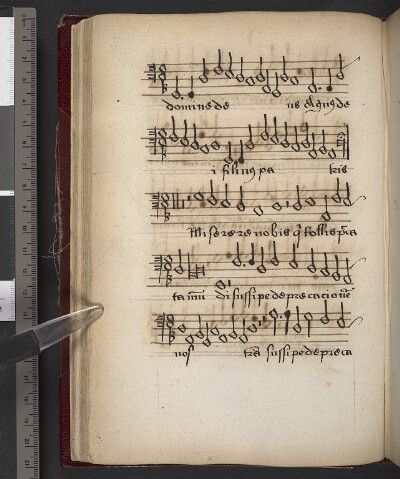 domine de us agnus de
i filius pa tris
Miserere nobis q tollis pcca
ta mūdi suscipe deprecacionē
nos trā suscipe depreca